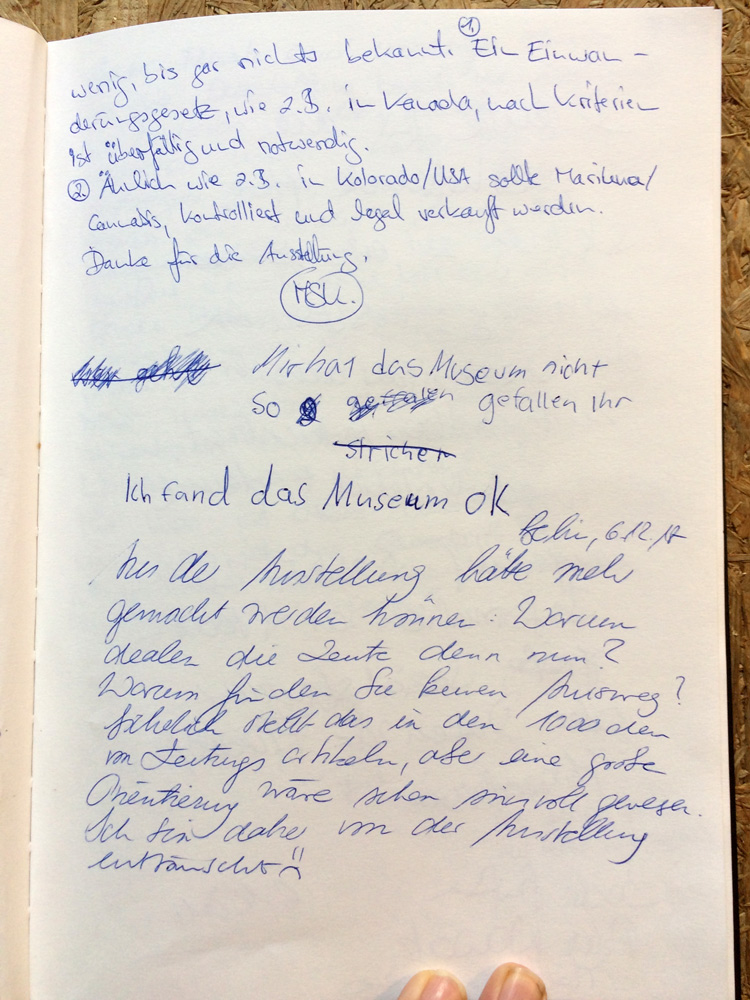 wenig, bis gar nichts bekannt. ① Ein Einwan-
derungsgesetz, wie z.B. in Kanada, nach Kriterien
ist überfällig und notwendig.
② Ähnlich wie z.B. in Kolorado/USA sollte Marihuna/
Cannabis, kontrolliert und legal verkauft werden.
Danke für die Ausstellung.
MSK.
Mir hat das Museum nicht
so gefallen gefallen ihr
strichen
Ich fand das Museum OK
Berlin, 6.12.17
Aus der Ausstellung hätte mehr
gemacht werden können: Warum
dealen die Leute denn nun?
Warum finden Sie keinen Ausweg?
Sicherlich steht das in den 1000den
von Zeitungs artikeln, aber eine große
Orientierung wäre schon sinnvoll gewesen.
Ich bin daher von der Ausstellung
enttäuscht